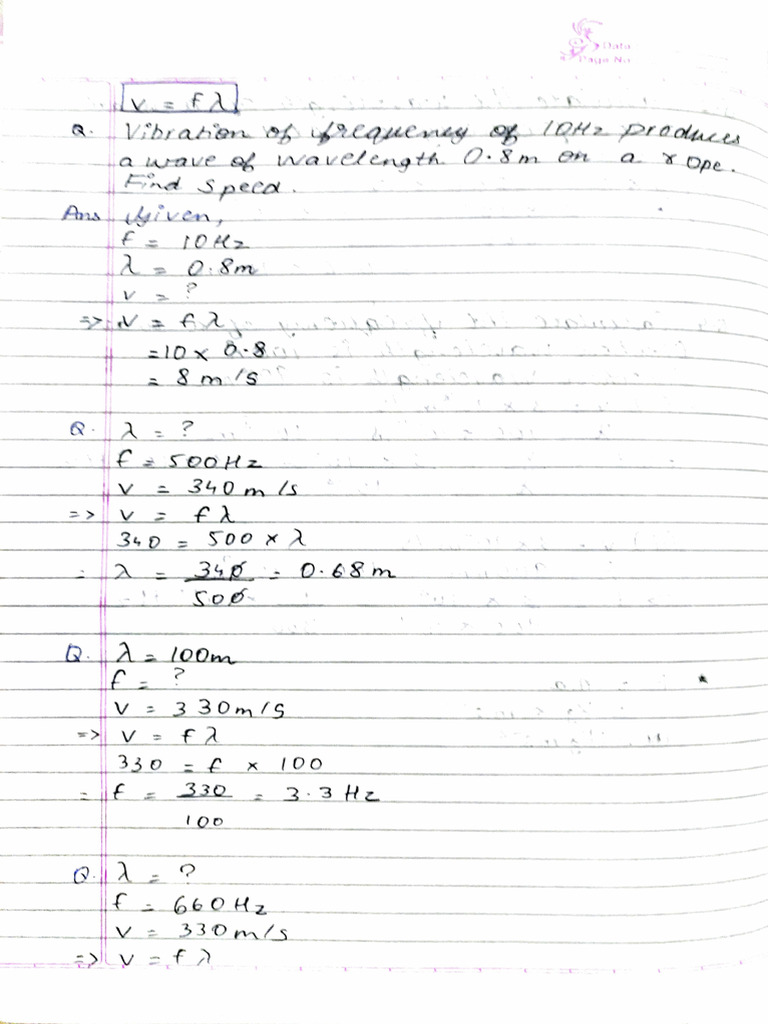 Data
Page No
v = fλ
Q. Vibration of frequency of 10Hz produces
a wave of wavelength 0.8m on a rope.
Find speed.
Ans Given,
f = 10Hz
λ = 0.8m
v = ?
=> v = fλ
=10 x 0.8
= 8 m/s
Q. λ = ?
f = 500Hz
v = 340 m/s
=> v = fλ
340 = 500 x λ
= λ = 340/500 = 0.68m
Q. λ = 100m
f = ?
v = 330m/s
=> v = fλ
330 = f x 100
= f = 330/100 = 3.3 Hz
Q. λ = ?
f = 660Hz
v = 330m/s
=> v = fλ